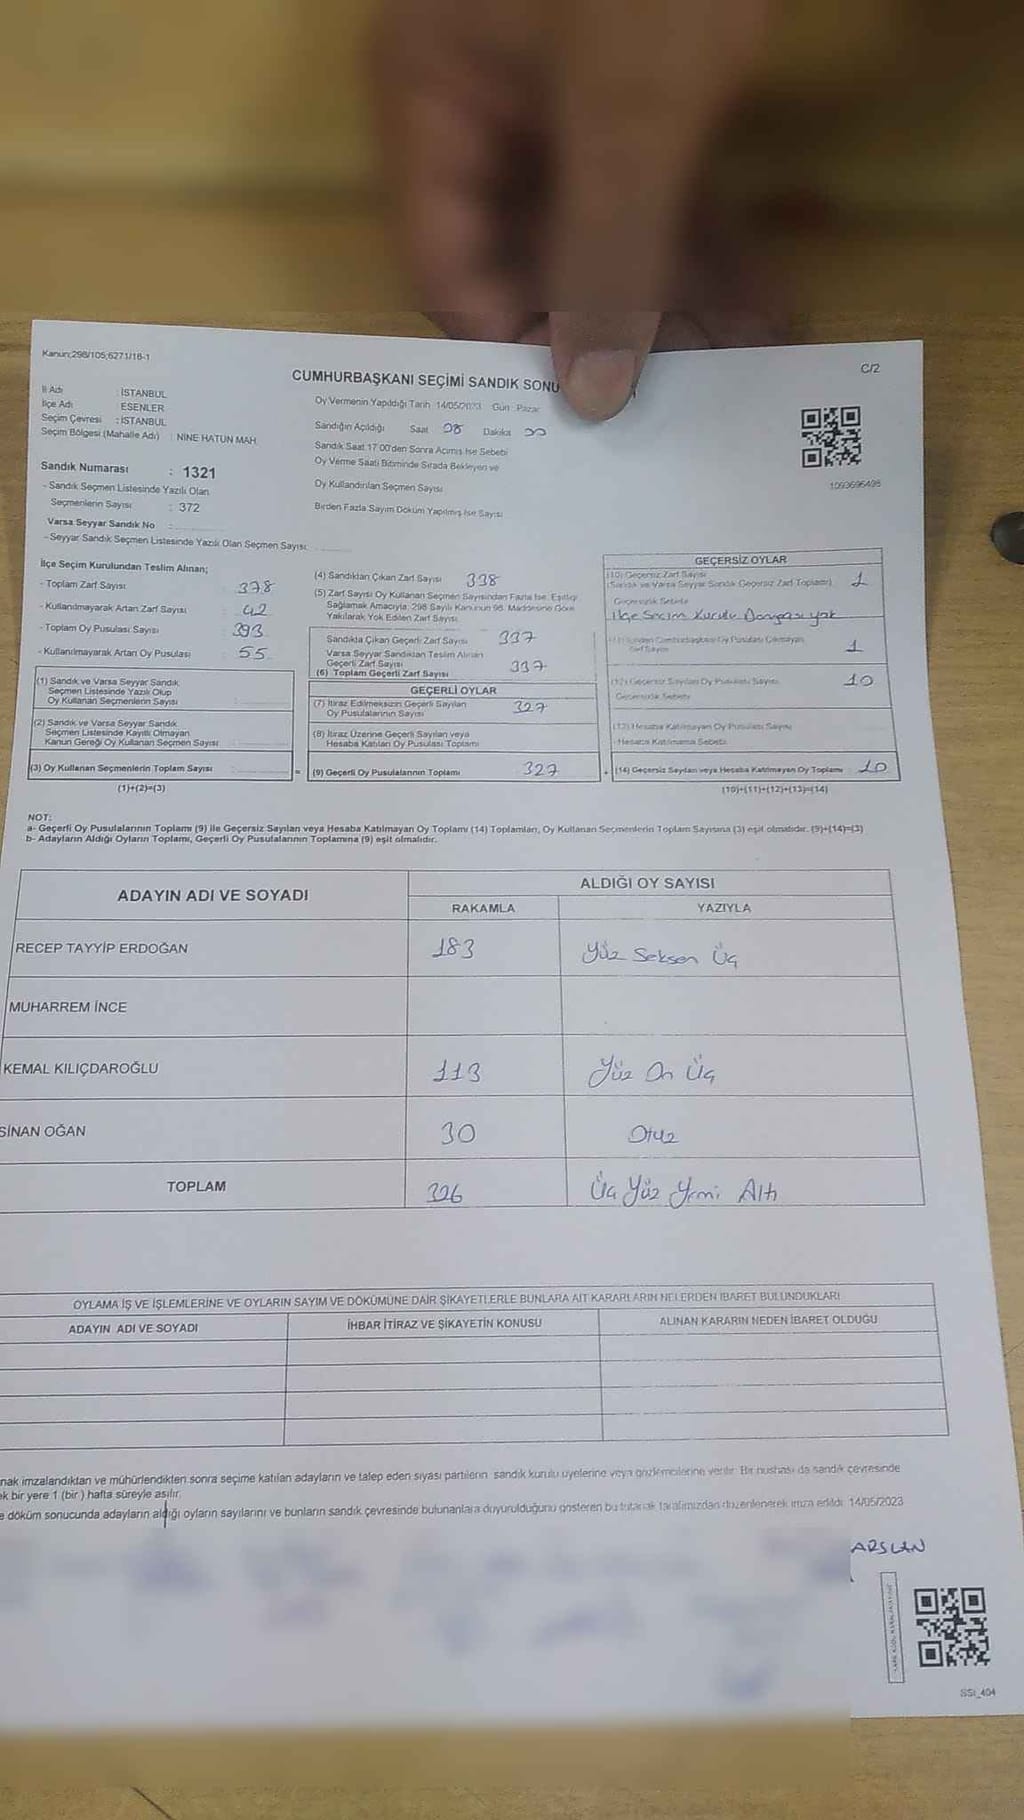 Kanun;298/105;6271/18-1
C/2
CUMHURBAŞKANI SEÇİMİ SANDIK SONU
İl Adı : İSTANBUL
İlçe Adı : ESENLER
Seçim Çevresi : İSTANBUL
Seçim Bölgesi (Mahalle Adı) : NİNE HATUN MAH.
Oy Vermenin Yapıldığı Tarih :14/05/2023 Gün : Pazar
Sandığın Açıldığı Saat 08 Dakika 00
Sandık Saat 17:00'den Sonra Açılmış İse Sebebi
Oy Verme Saati Bitiminde Sırada Bekleyen ve
Oy Kullandırılan Seçmen Sayısı
Birden Fazla Sayım Döküm Yapılmış İse Sayısı
1093696495
Sandık Numarası : 1321
- Sandık Seçmen Listesinde Yazılı Olan
Seçmenlerin Sayısı : 372
Varsa Seyyar Sandık No :
- Seyyar Sandık Seçmen Listesinde Yazılı Olan Seçmen Sayısı
İlçe Seçim Kurulundan Teslim Alınan;
- Toplam Zarf Sayısı : 378
- Kullanılmayarak Artan Zarf Sayısı : 42
- Toplam Oy Pusulası Sayısı : 393
- Kullanılmayarak Artan Oy Pusulası : 55
(1) Sandık ve Varsa Seyyar Sandık
Seçmen Listesinde Yazılı Olup
Oy Kullanan Seçmenlerin Sayısı :
(2) Sandık ve Varsa Seyyar Sandık
Seçmen Listesinde Kayıtlı Olmayan
Kanun Gereği Oy Kullanan Seçmen Sayısı
(3) Oy Kullanan Seçmenlerin Toplam Sayısı :
(1)+(2)=(3)
(4) Sandıktan Çıkan Zarf Sayısı 338
(5) Zarf Sayısı Oy Kullanan Seçmen Sayısından Fazla İse, Eşitliği
Sağlamak Amacıyla; 298 Sayılı Kanunun 98. Maddesine Göre
Yakılarak Yok Edilen Zarf Sayısı
Sandıkta Çıkan Geçerli Zarf Sayısı 337
Varsa Seyyar Sandıktan Teslim Alınan
Geçerli Zarf Sayısı
(6) Toplam Geçerli Zarf Sayısı 337
GEÇERLİ OYLAR
(7) İtiraz Edilmeksizin Geçerli Sayılan
Oy Pusulalarının Sayısı 327
(8) İtiraz Üzerine Geçerli Sayılan veya
Hesaba Katılan Oy Pusulası Toplamı
= (9) Geçerli Oy Pusulalarının Toplamı 327
GEÇERSİZ OYLAR
(10) Geçersiz Zarf Sayısı
(Sandık ve Varsa Seyyar Sandık Geçersiz Zarf Toplamı) 1
Geçersizlik Sebebi
İlçe Seçim Kurulu Damgası yok
(11) İçinden Cumhurbaşkanı Oy Pusulası Çıkmayan
Zarf Sayısı 1
(12) Geçersiz Sayılan Oy Pusulası Sayısı 10
Geçersizlik Sebebi
(13) Hesaba Katılmayan Oy Pusulası Sayısı
- Hesaba Katılmama Sebebi
+ (14) Geçersiz Sayılan veya Hesaba Katılmayan Oy Toplamı 10
(10)+(11)+(12)+(13)=(14)
NOT:
a- Geçerli Oy Pusulalarının Toplamı (9) ile Geçersiz Sayılan veya Hesaba Katılmayan Oy Toplamı (14) Toplamları, Oy Kullanan Seçmenlerin Toplam Sayısına (3) eşit olmalıdır. (9)+(14)=(3)
b- Adayların Aldığı Oyların Toplamı, Geçerli Oy Pusulalarının Toplamına (9) eşit olmalıdır.
ADAYIN ADI VE SOYADI
ALDIĞI OY SAYISI
RAKAMLA YAZIYLA
RECEP TAYYİP ERDOĞAN 183 Yüz Seksen Üç
MUHARREM İNCE
KEMAL KILIÇDAROĞLU 113 Yüz On Üç
SİNAN OĞAN 30 Otuz
TOPLAM 326 Üç Yüz Yirmi Altı
OYLAMA İŞ VE İŞLEMLERİNE VE OYLARIN SAYIM VE DÖKÜMÜNE DAİR ŞİKAYETLERLE BUNLARA AİT KARARLARIN NELERDEN İBARET BULUNDUKLARI
ADAYIN ADI VE SOYADI İHBAR İTİRAZ VE ŞİKAYETİN KONUSU ALINAN KARARIN NEDEN İBARET OLDUĞU
nak imzalandıktan ve mühürlendikten sonra seçime katılan adayların ve talep eden siyasi partilerin sandık kurulu üyelerine veya gözlemcilerine verilir. Bir nüshası da sandık çevresinde
k bir yere 1 (bir) hafta süreyle asılır.
e döküm sonucunda adayların aldığı oyların sayılarını ve bunların sandık çevresinde bulunanlara duyurulduğunu gösteren bu tutanak tarafımızdan düzenlenerek imza edildi. 14/05/2023
ARSLAN
SSİ_404